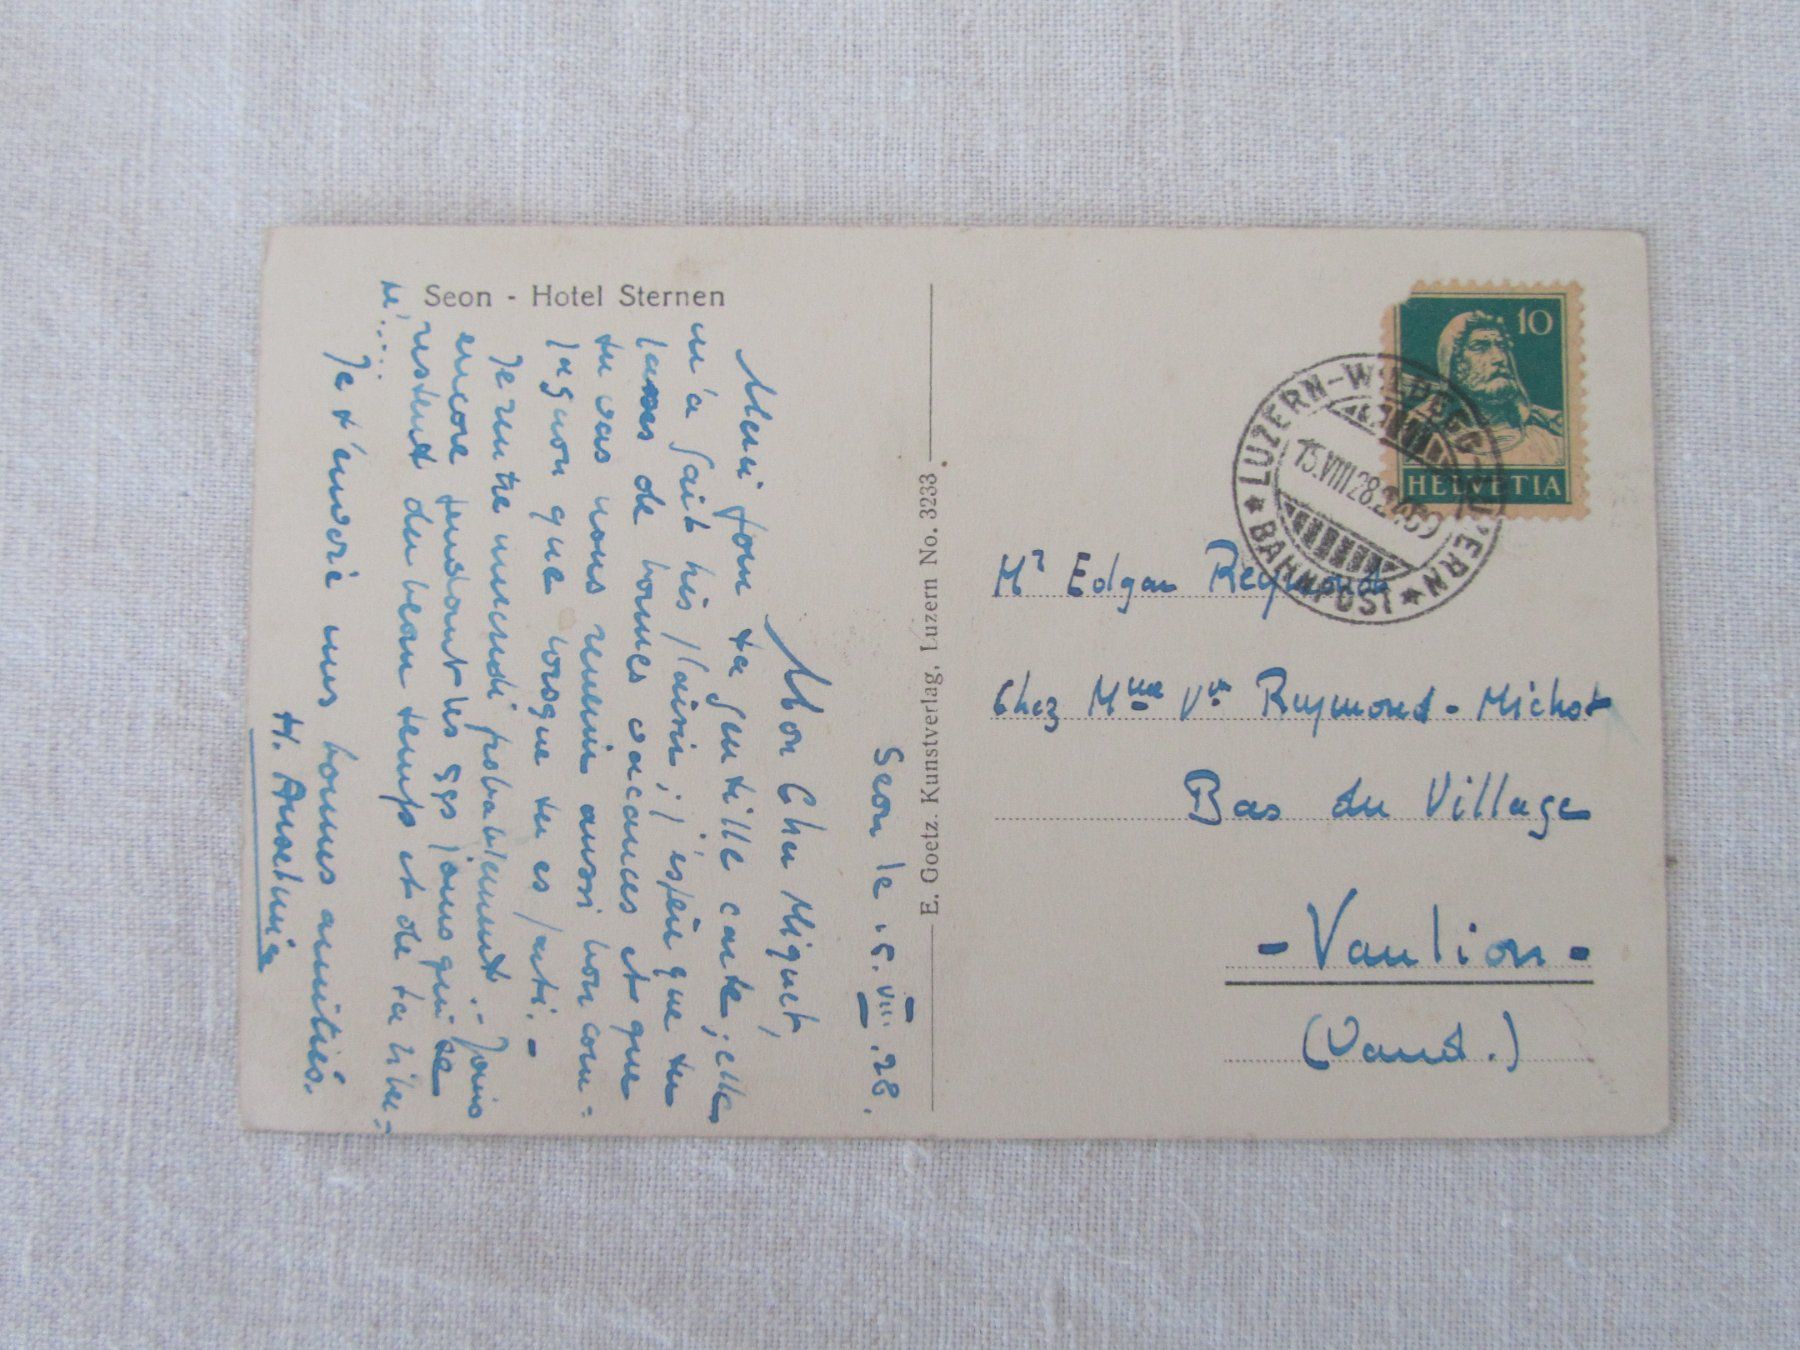 Seon - Hotel Sternen
Seon le 15.VIII.28.
Mon Cher Miquet,
Merci pour ta gentille carte; elle
m'a fait très plaisir; j'espère que tu
passes de bonnes vacances et que
tu vas nous revenir aussi bon com=
pagnon que lorsque tu es parti. -
Je rentre mercredi probablement. Jouis
encore pendant les qqs jours qui te
restent du beau temps et de ta liber=
té.....
Je t'envoie mes bonnes amitiés.
H.
E. Goetz. Kunstverlag, Luzern No. 3233
10
HELVETIA
LUZERN-WILDEGG-LUZERN
15.VIII.28.
BAHNPOST
Mr Edgar Reymond
Chez Mme Vve Reymond-Michot
Bas du Village
- Vaulion -
(Vaud.)